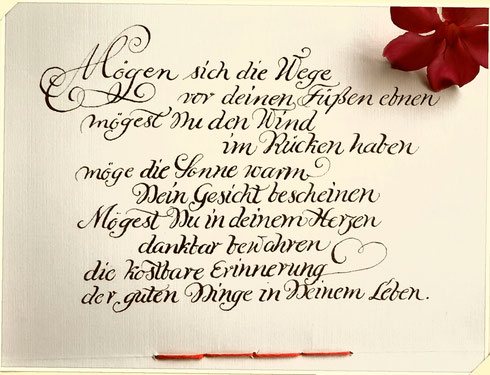 Mögen sich die Wege
vor deinen Füßen ebnen
mögest Du den Wind
im Rücken haben
möge die Sonne warm
Dein Gesicht bescheinen
Mögest Du in deinem Herzen
dankbar bewahren
die kostbare Erinnerung
der guten Dinge in Deinem Leben.